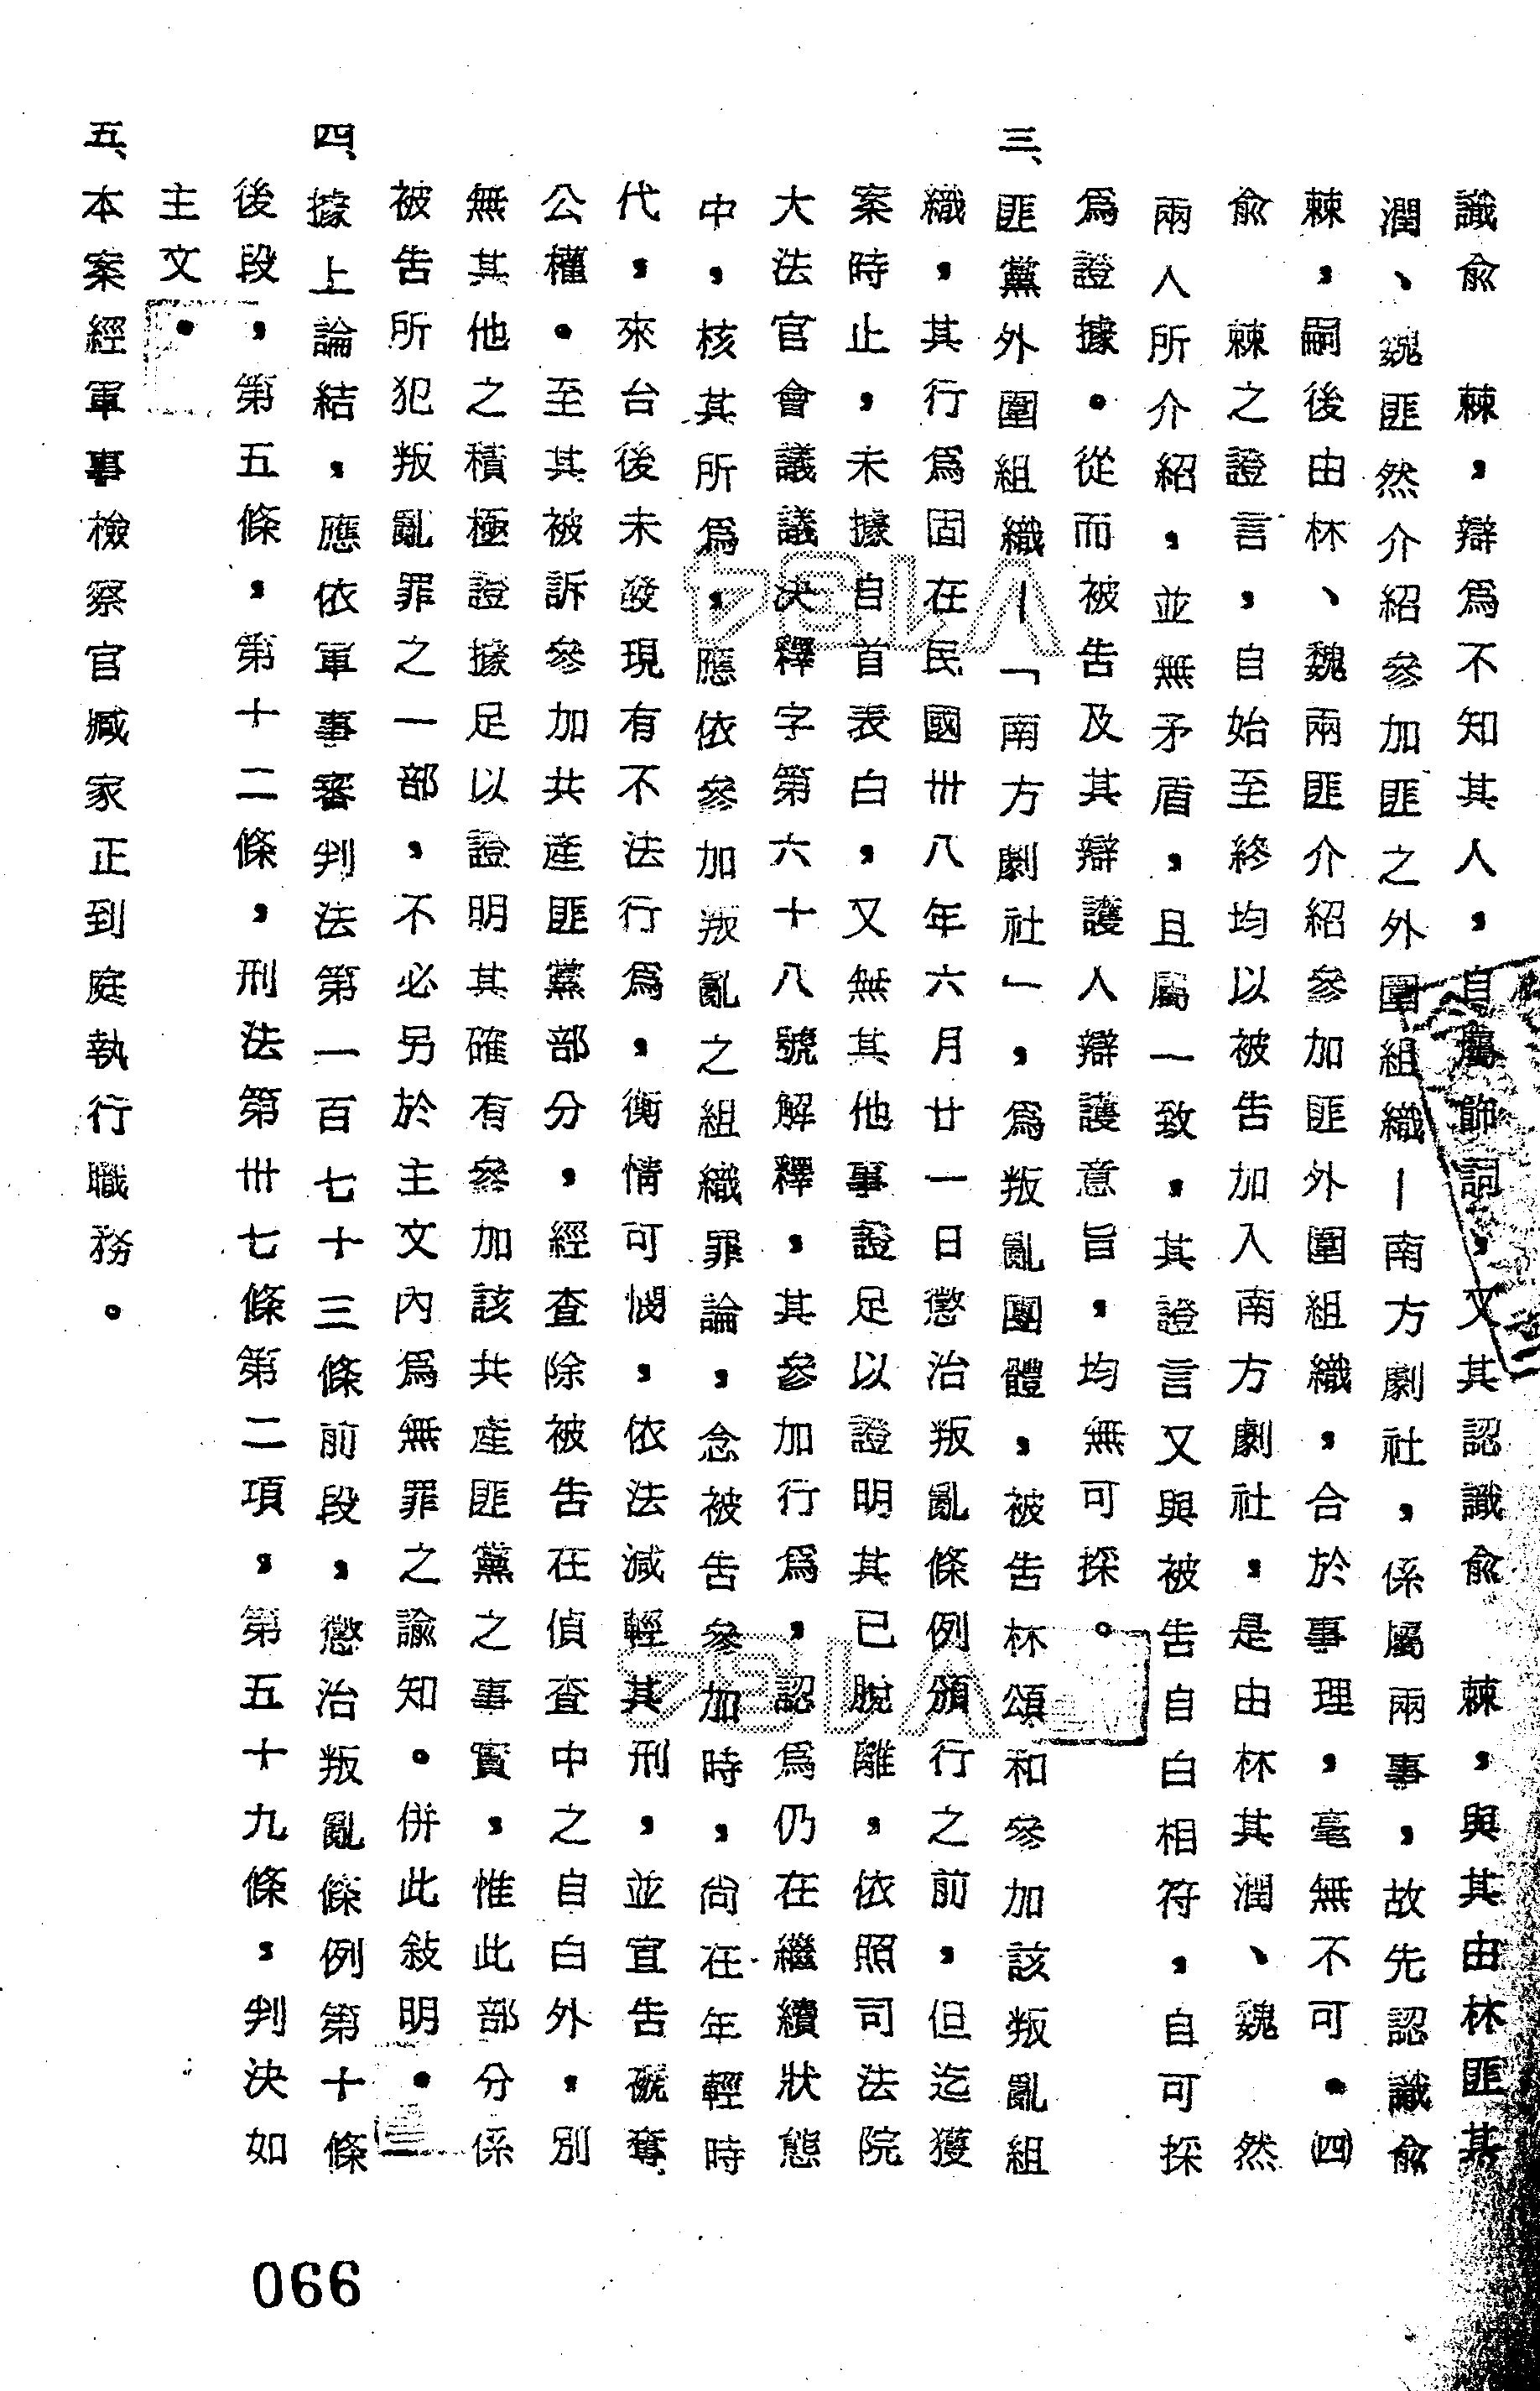 識俞　棘，辯爲不知其人，自屬飾詞，又其認識俞　棘，與其由林匪其
潤、魏匪然介紹參加匪之外圍組織—南方劇社，係屬兩事，故先認識俞
棘，嗣後由林、魏兩匪介紹參加匪外圍組織，合於事理，毫無不可。㈣
俞　棘之證言，自始至終均以被告加入南方劇社，是由林其潤、魏　然
兩人所介紹，並無矛盾，且屬一致，其證言又與被告自白相符，自可採
爲證據。從而被告及其辯護人辯護意旨，均無可採。
三、匪黨外圍組織—「南方劇社」，爲叛亂團體，被告林頌和參加該叛亂組
織，其行爲固在民國卅八年六月廿一日懲治叛亂條例頒行之前，但迄獲
案時止，未據自首表白，又無其他事證足以證明其已脫離，依照司法院
大法官會議議決釋字第六十八號解釋，其參加行爲，認爲仍在繼續狀態
中，核其所爲，應依參加叛亂之組織罪論，念被告參加時，尚在年輕時
代，來台後未發現有不法行爲，衡情可憫，依法減輕其刑，並宣告褫奪
公權。至其被訴參加共產匪黨部分，經查除被告在偵查中之自白外，別
無其他之積極證據足以證明其確有參加該共產匪黨之事實，惟此部分係
被告所犯叛亂罪之一部，不必另於主文內爲無罪之諭知。併此敍明。
四、據上論結，應依軍事審判法第一百七十三條前段，懲治叛亂條例第十條
後段，第五條，第十二條，刑法第卅七條第二項，第五十九條，判決如
主文。
五、本案經軍事檢察官臧家正到庭執行職務。
066